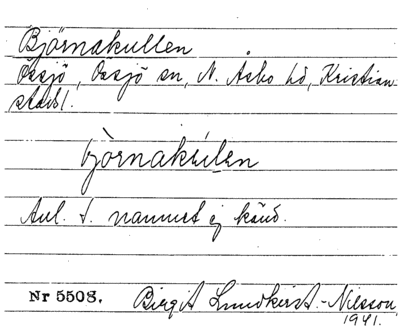 Björnakullen
Össjö, Össjö sn, N. Åsbo hd, Kristian
stads l.
bjòrnakúlen
Anl. t. namnet ej känd.
Nr 5508. Birgit Lundkvist-Nilsson
1941.